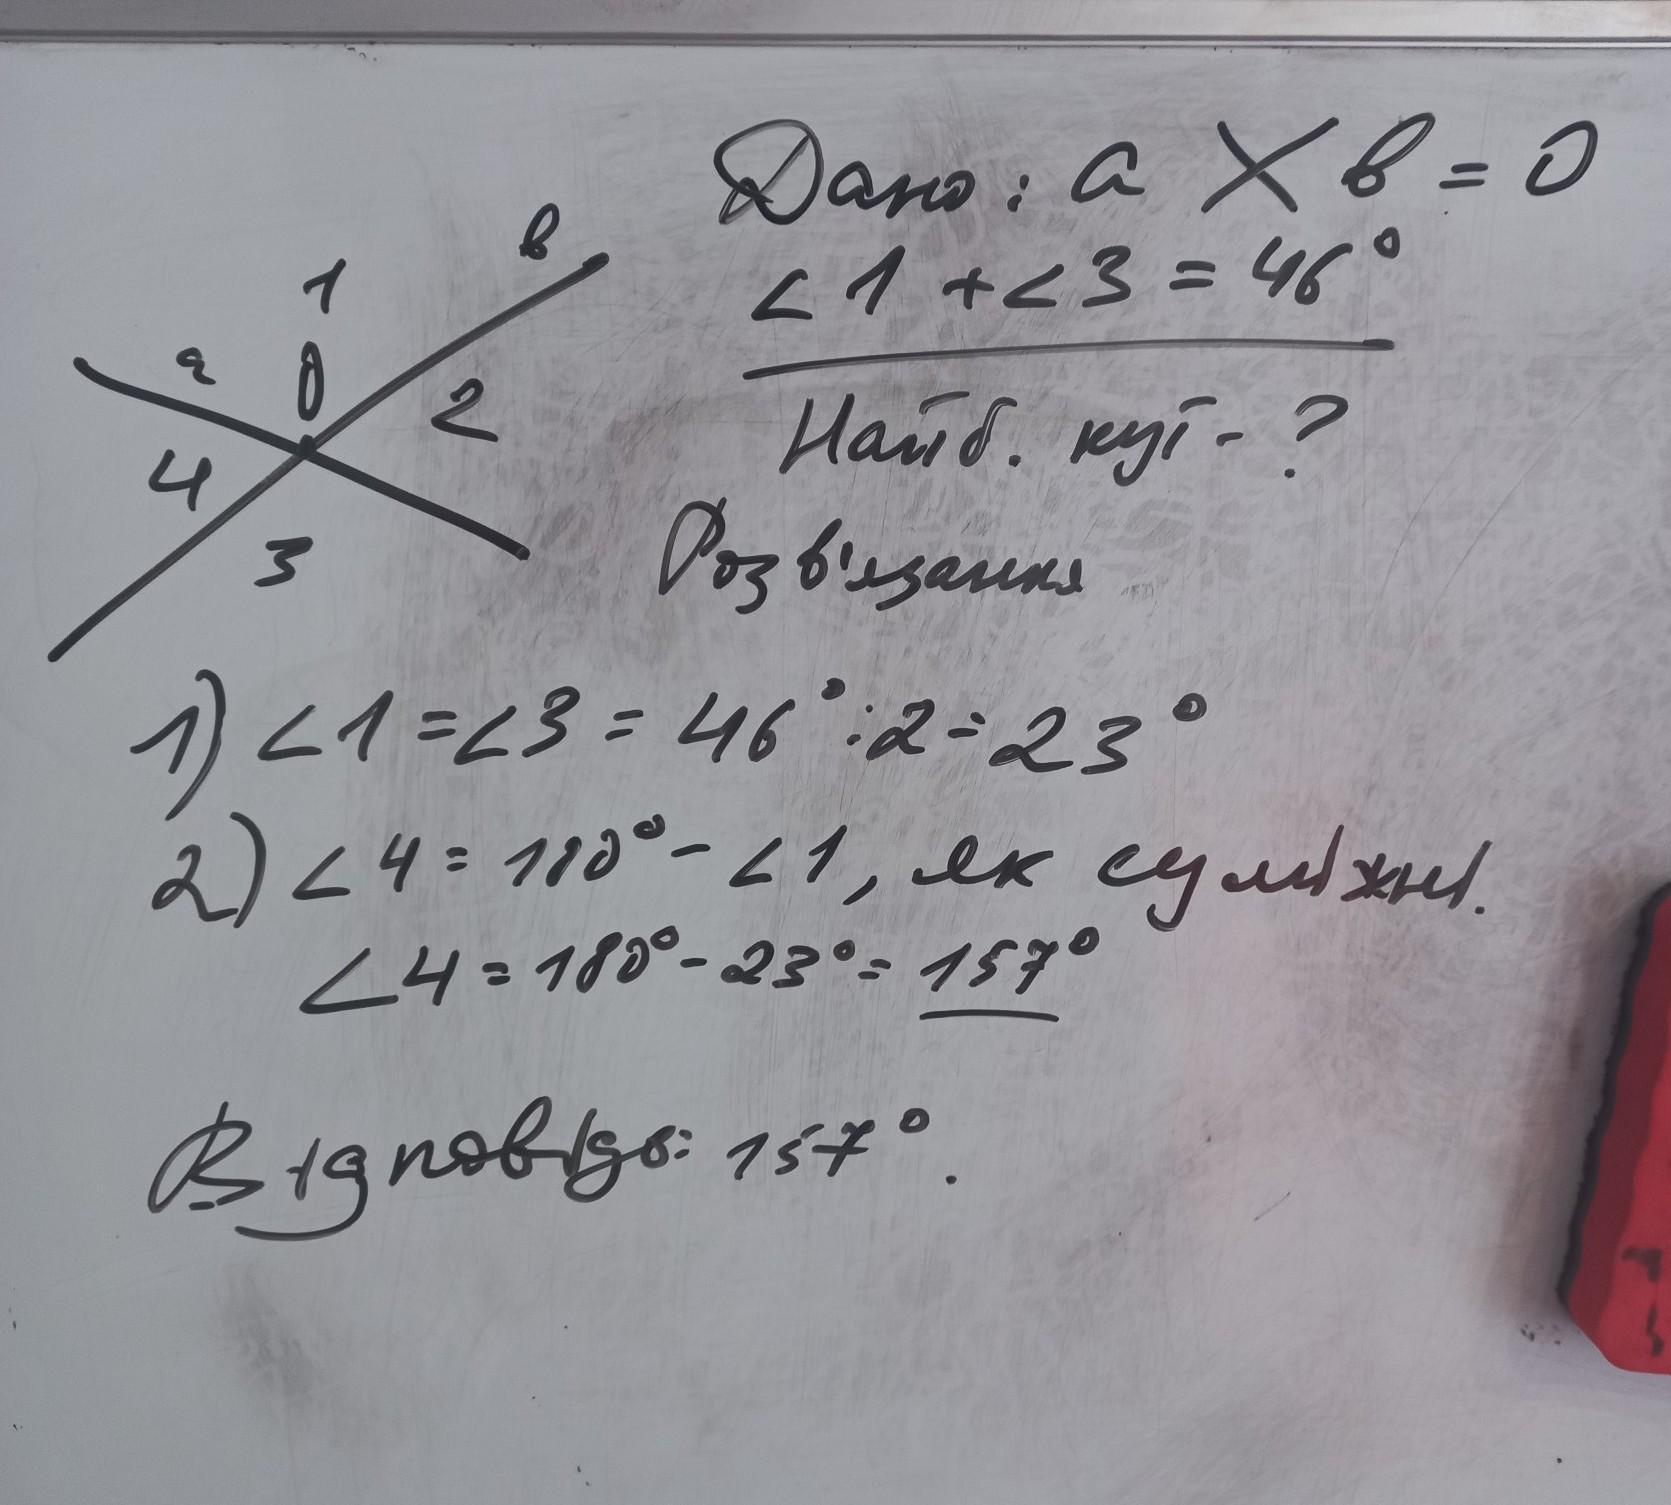 Дано: а X в = 0
∠1 + ∠3 = 46°
Найб. кут - ?
1
в
а
0
2
4
3
Розв'язання
1) ∠1 = ∠3 = 46° : 2 = 23°
2) ∠4 = 180° - ∠1, як суміжні.
∠4 = 180° - 23° = 157°
Відповідь: 157°.